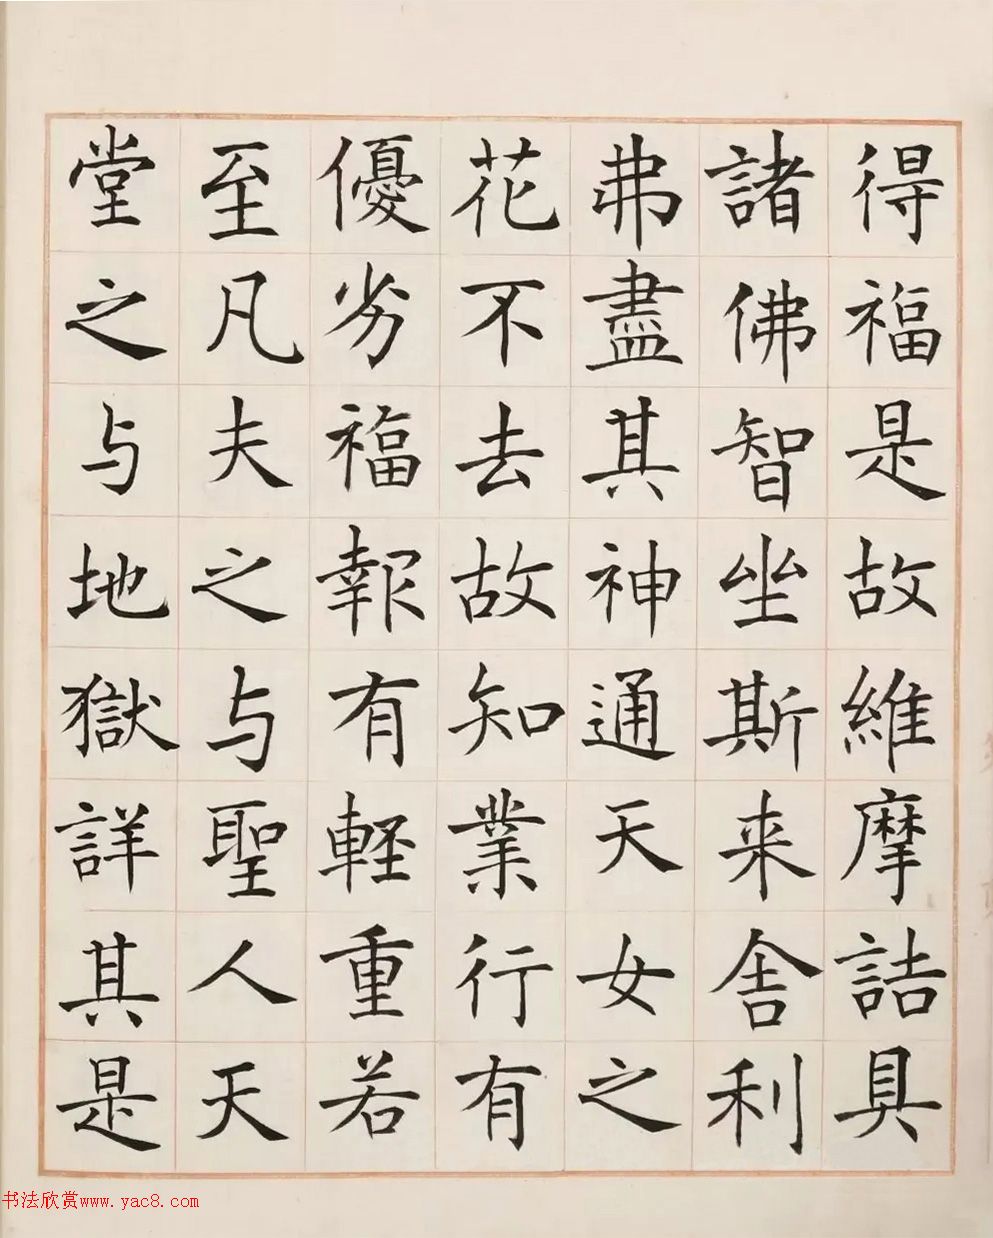 得福是故維摩詰具
諸佛智坐斯来舎利
弗盡其神通天女之
花不去故知業行有
優劣福報有軽重若
至凡夫之与聖人天
堂之与地獄詳其是
书法欣赏www.yac8.com